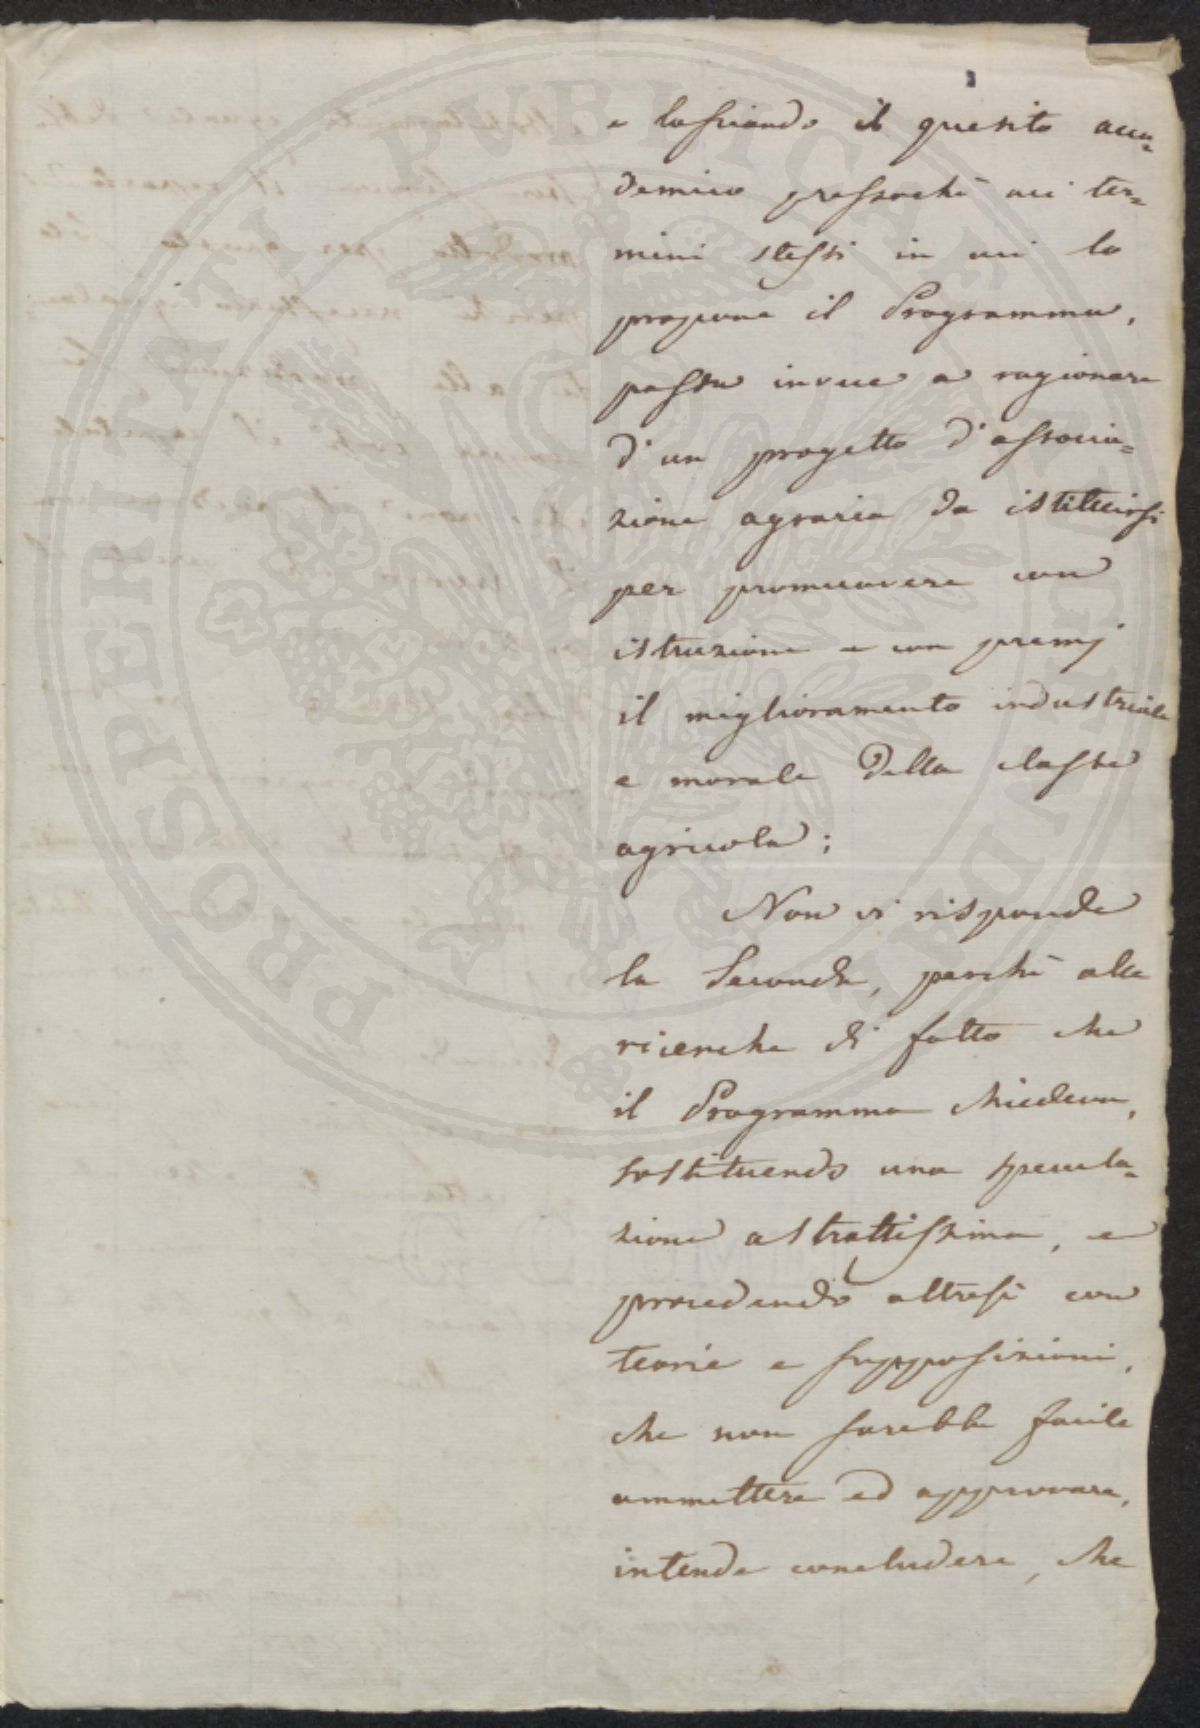 e lasciando il quesito acca=
demico pressochè nei ter=
mini stessi in cui lo
propone il Programma,
passa invece a ragionare
d'un progetto d'associa=
zione agraria da istituirsi
per promuovere con
istruzione e con premj
il miglioramento industriale
e morale della classe
agricola;
Non vi risponde
la Seconda, perchè alle
ricerche di fatto che
il Programma chiedeva,
sostituendo una specula=
zione astrattissima, e
procedendo altresì con
teorie e supposizioni,
che non sarebbe facile
ammettere ed approvare,
intende concludere, che
PROSPERITATI PVBLICAE AVGENDAE